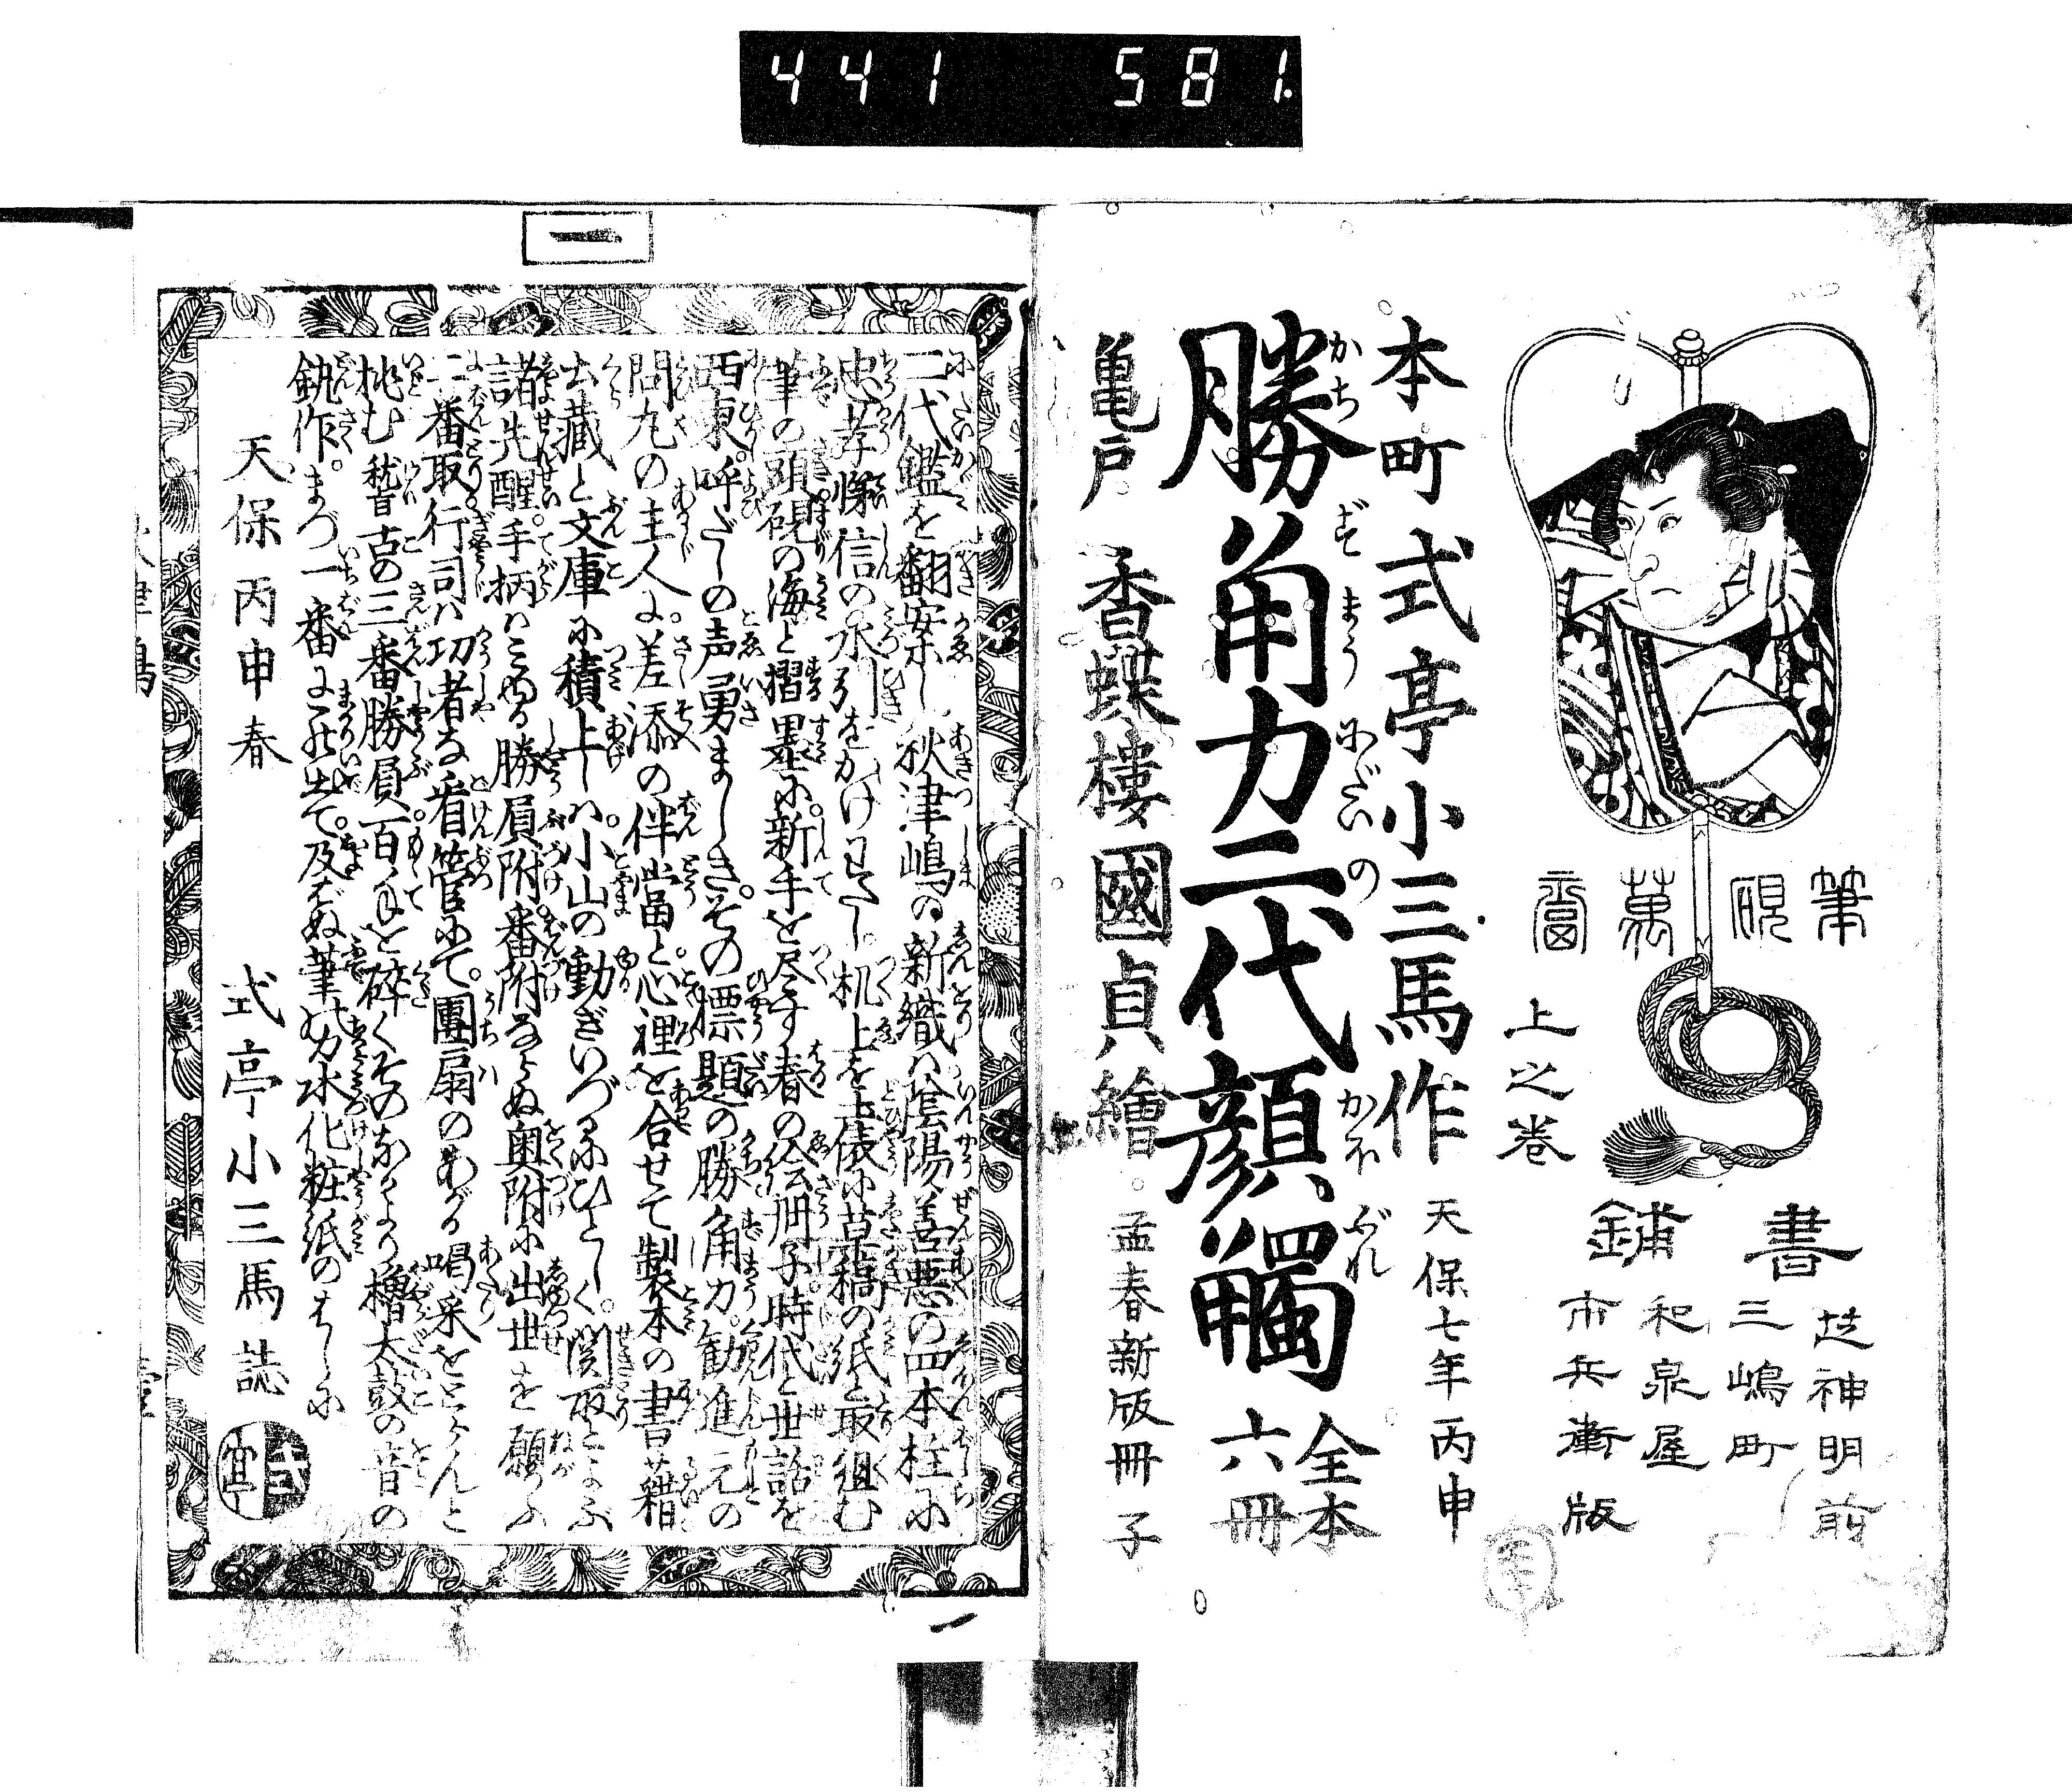 441 581.
筆硯萬
上之巻
書鋪
芝神明前
三嶋町
和泉屋
市兵衛版
本町 式亭小三馬作
天保七年丙申
勝角力二代顔觸
かちずまうにだいのかほぶれ
全本
六冊
亀戸 香蝶樓國貞繪
孟春新版冊子
一
二代鑑を翻案し秋津嶋の新織ハ陰陽善悪の四本柱に
忠孝悌信の水引をかけわたし。机上を土俵に草稿の紙と取組む
筆の頭硯の海と摺墨に。新手を尽す春の絵冊子時代と世話を
西東。呼だしの声勇ましき。その標題の勝角力。勧進元の
問丸の主人に。差添の伴當と。心裡を合せて製本の書藉
出蔵と文庫に積上しハ。小山の動ぎいづるにひとしく関取とよぶ
諸先醒。手柄ハこゝゆる勝屓附。番附ならぬ奥附に出世を願ふ
二番取行司ハ功者な看官にて。團扇のあがる喝采をとらんと
挑む稽古の三番勝屓百手を碎くそのなかより櫓太鼓の音の
鈍作。まづ一番にまかり出て。及ばぬ筆の力水化粧紙のはしに
天保丙申春
式亭小三馬誌
式亭
一